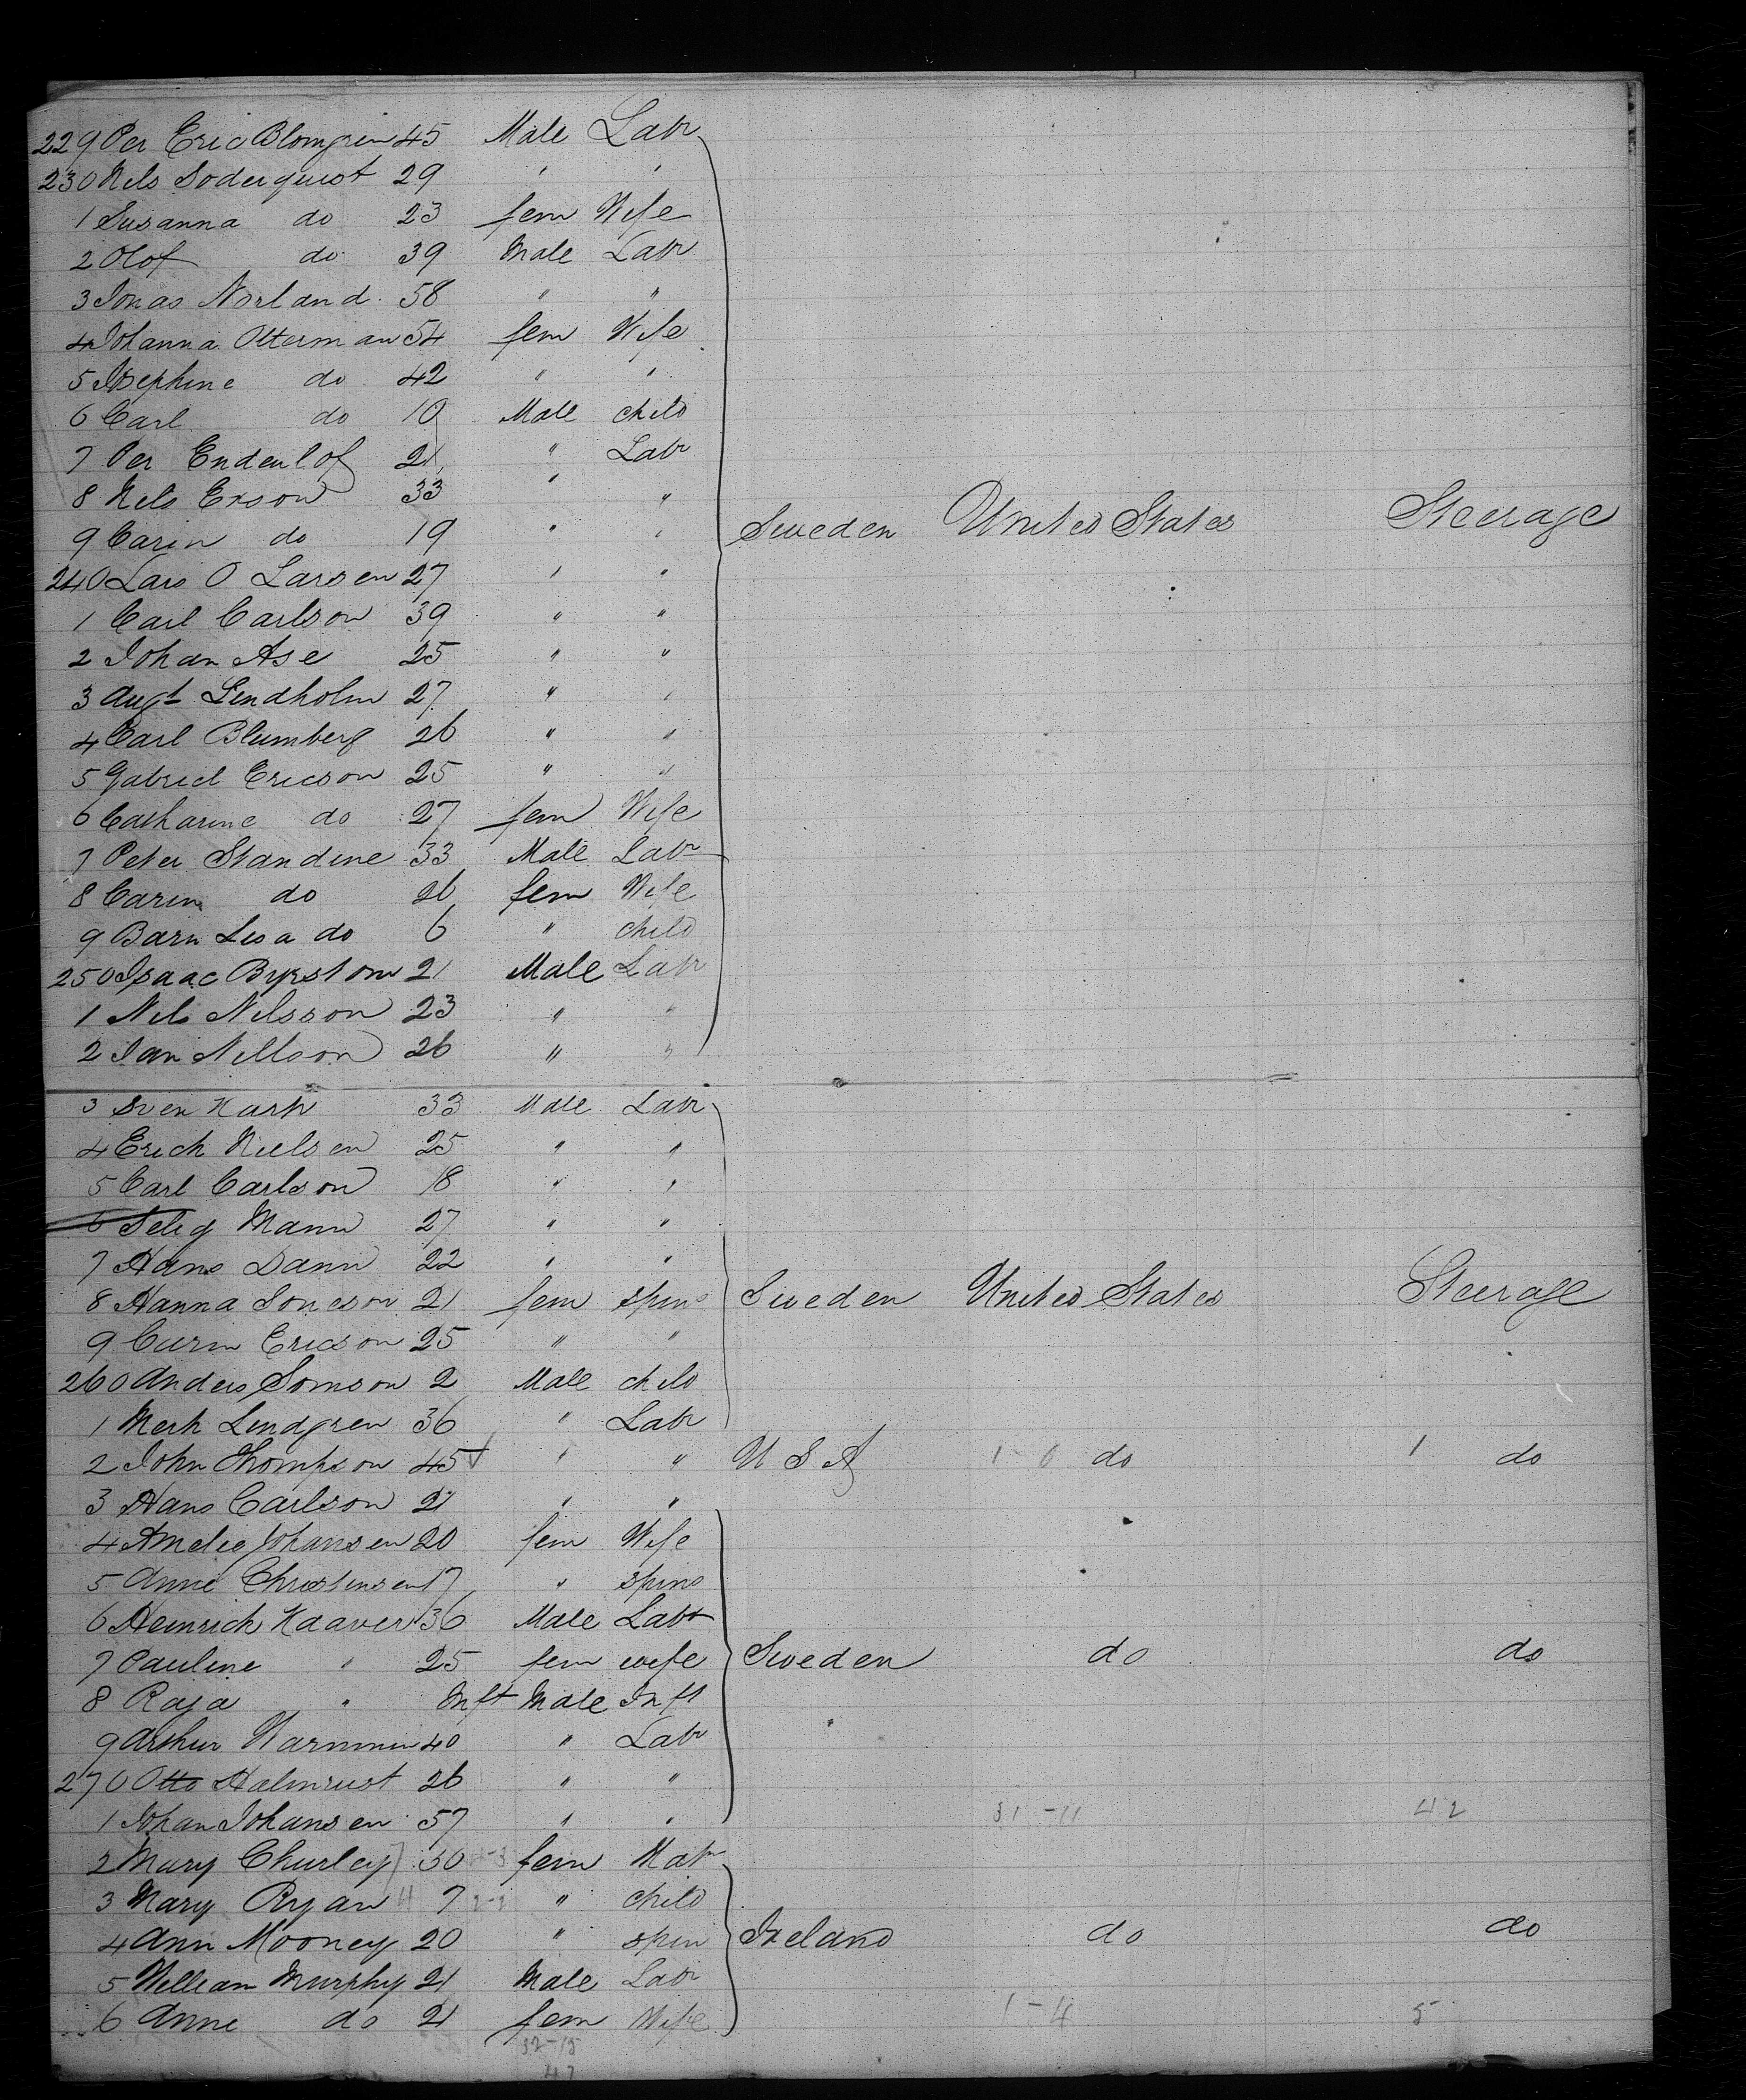 229 Per Eric Blomgren 45 Male Labr
230 Nels Soderquist 29 " "
1 Susanna do 23 fem Wife
2 Olof do 39 Male Labr
3 Jonas Norland 58 " "
4 Johanna Otterman 54 fem Wife
5 Josephine do 42 " "
6 Carl do 10 Male child
7 Per Endenlof 21 " Labr
8 Nels Exson 33 " "
9 Carin do 19 " " Sweden United States Steerage
240 Lars O Larsen 27 " "
1 Carl Carlson 39 " "
2 Johan Ase 25 " "
3 Augt Lindholm 27 " "
4 Carl Blumberg 26 " "
5 Gabriel Ericson 25 " "
6 Catharine do 27 fem Wife
7 Peter Standine 33 Male Labr
8 Carin do 26 fem Wife
9 Barn Lisa do 6 " child
250 Isaac 21 Male Labr
1 Nels Nilsson 23 " "
2 Jan Nillson 26 " "
3 Sven 33 Male Labr
4 Erich Nielsen 25 " "
5 Carl Carlson 18 " "
6 Selig Mann 27 " "
7 Hans Dann 22 " "
8 Hanna Joneson 21 fem spins Sweden United States Steerage
9 Carin Ericson 25 " "
260 Anders 2 Male child
1 Lindgren 36 " Labr
2 John Thompson 45 " " U S A 1 - 0 do 1 do
3 Hans Carlson 21 " "
4 Amelie Johansen 20 fem Wife
5 Anne Christensen 17 " spins
6 Heinrich Kaaver 36 Male Labr
7 Pauline " 25 fem wife Sweden do do
8 Raja " Inft Male Inft
9 Arthur 40 " Labr
270 Otto 26 " "
1 Johan Johansen 57 " " 31 - 11 42
2 Mary Churley 30 fem Matr
3 Mary Ryan 7 " child
4 Ann Mooney 20 " spin Ireland do do
5 William Murphy 21 Male Labr
6 Anne do 21 fem Wife 1 - 4 5
32 - 15
47